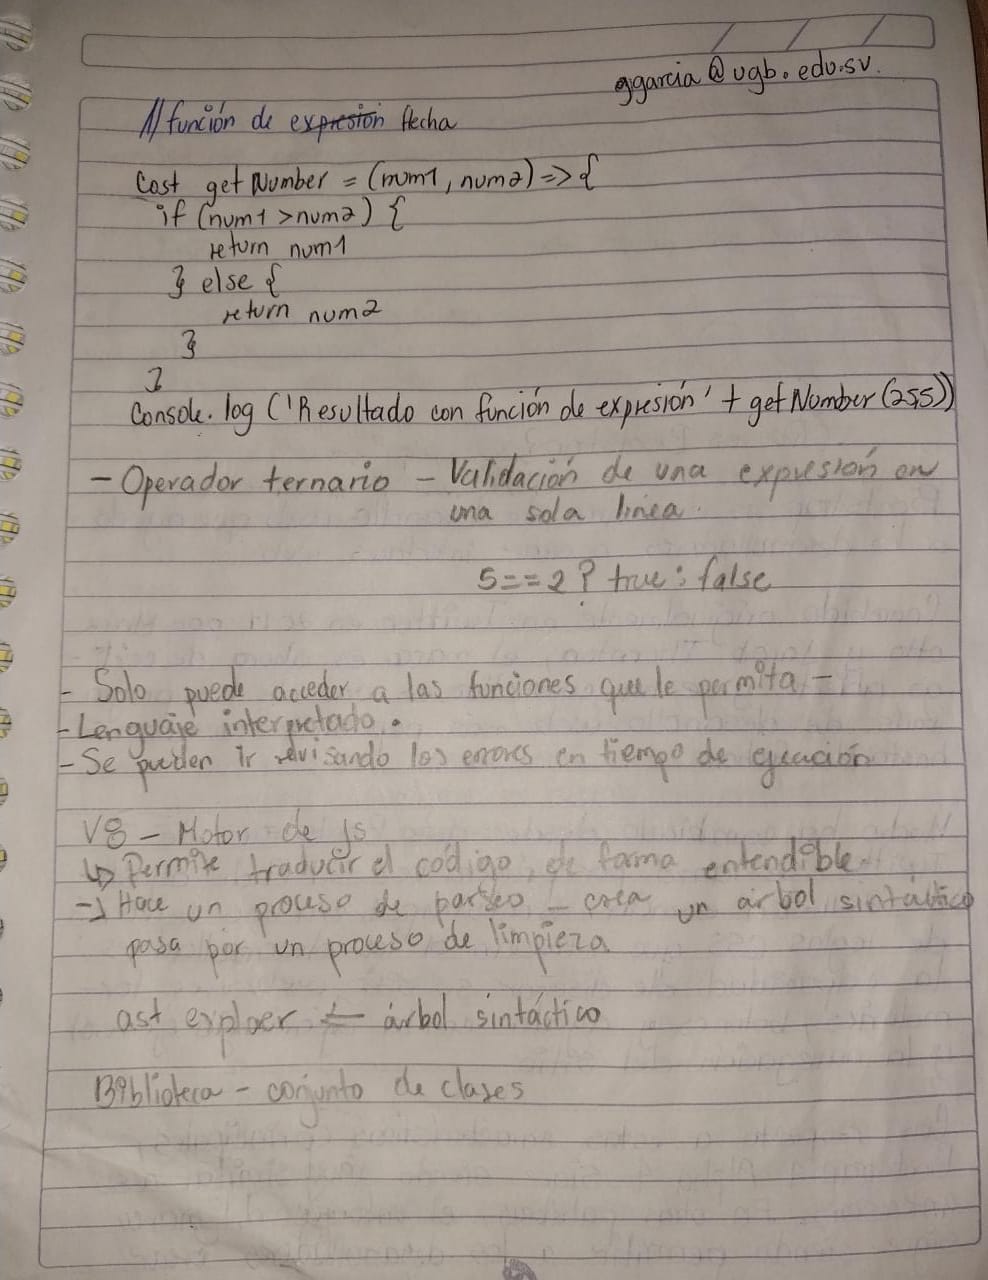 ggarcia@ugb.edu.sv.
1) función de expresión flecha
Cost getNumber = (num1, num2) => {
if (num1 > num2) {
return num1
} else {
return num2
}
}
Console.log ('Resultado con función de expresión' + getNumber (255))
- Operador ternario - Validación de una expresión en
una sola línea.
5 == 2 ? true : false
- Solo puede acceder a las funciones que le permita -
- Lenguaje interpretado.
- Se pueden ir revisando los errores en tiempo de ejecución
V8 - Motor de js
↳ Permite traducir el código, de forma entendible
→ Hace un proceso de parseo - crea un árbol sintáctico
pasa por un proceso de limpieza
ast exploer ← árbol sintáctico
Biblioteca - conjunto de clases